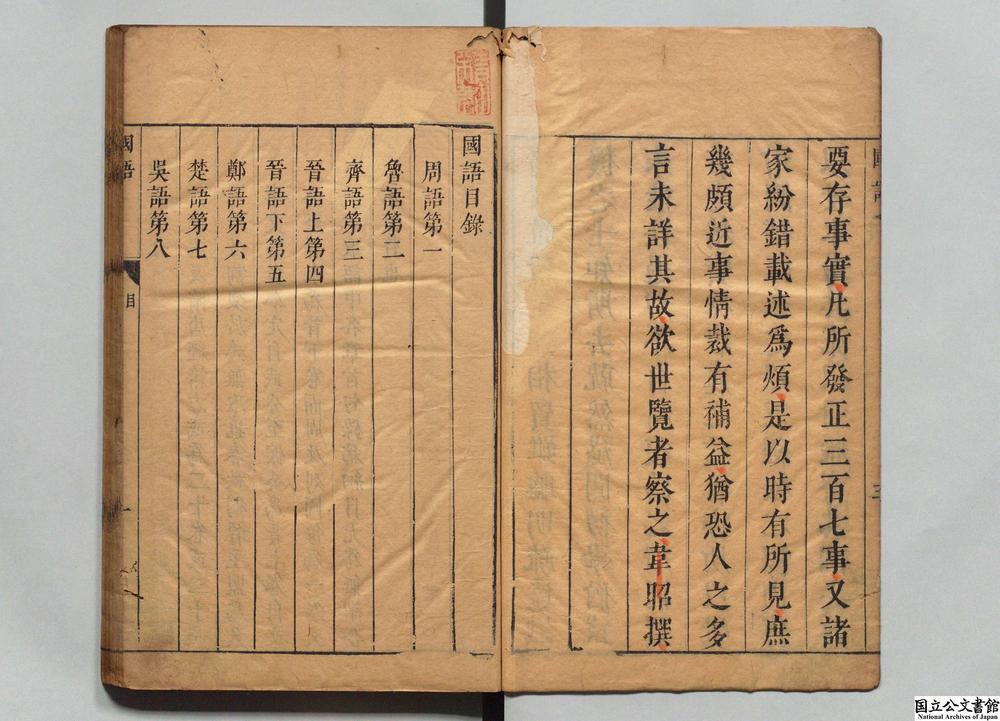 要存事實凡所發正三百七事又諸
家紛錯載述爲煩是以時有所見庶
幾頗近事情裁有補益猶恐人之多
言未詳其故欲世覽者察之韋昭撰
國語目錄
周語第一
魯語第二
齊語第三
晉語上第四
晉語下第五
鄭語第六
楚語第七
吳語第八
國語
目
一
国立公文書館
National Archives of Japan